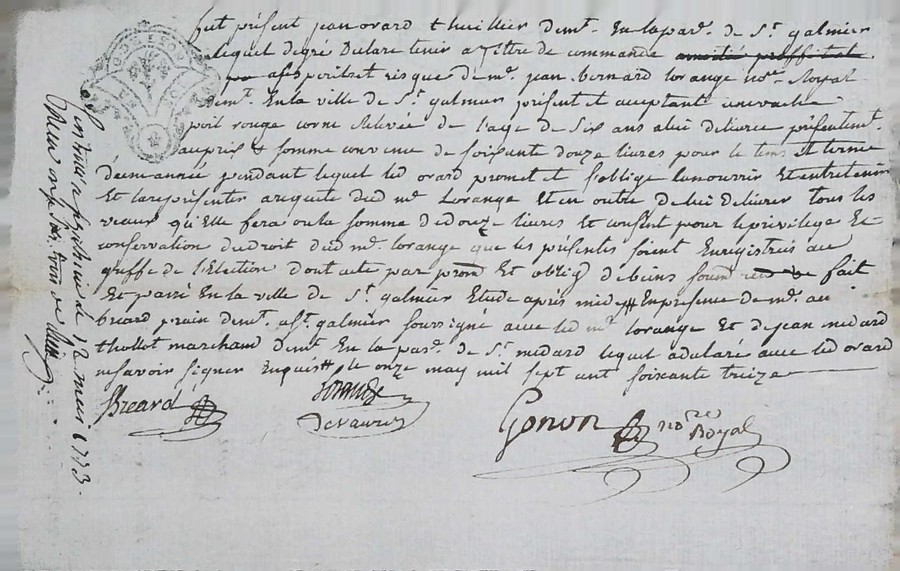 fut présent jean ovard thuillier demt. En la parr. de St. galmier
lequel degré Declare tenir a tiltre de commande
a ses perils et risque de mr. jean bernard lorange nore. Royal
demt. En la ville de St. galmier présent et acceptant une vache
poil rouge corne rellevée de l'age de six ans a lui delivrée présentemt.
au prix et somme convenue de soixante douze livres pour le tems et terme
d'une année pendant lequel led ovard promet et s'oblige la nourrir et entretenir
Et la représenter a requete dud mr. Lorange et en outre de lui delivrer tous les
veaux qu'Elle fera ou la somme de douze livres Et consent pour le privilege Et
conservation du droit dud mr. lorange que les présentes soient Enregistrés au
greffe de l'Election dont acte par prom Et oblig de biens soum fait
Et passé En la ville de St. galmier Etude après midy En presence de mr.
breard demt. a St. galmier soussigné avec led mr lorange Et de jean medard
thollot marchand demt. En la parr. de St. medard lequel a declaré avec led ovard
ne savoir signer Enquis le onze may mil sept cent soixante treize
Breard
Gonon nore Royal
12 mai 1773